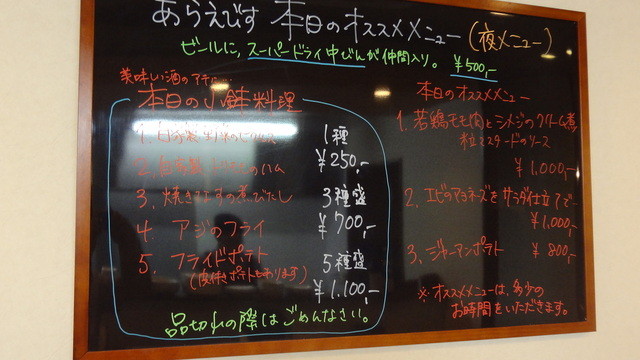 あらえびす 本日のオススメメニュー (夜メニュー)
ビールに、スーパードライ中びんが仲間入り。 ¥500,-
美味しい酒のアテに…
本日の小鉢料理
1. 自家製
2. 自家製 ハム
3. 焼きなすの煮びたし
4. アジのフライ
5. フライドポテト
(皮付きポテトもあります)
1種
¥250,-
3種盛
¥700,-
5種盛
¥1,100,-
品切れの際はごめんなさい。
本日のオススメメニュー
1. 若鶏モモ肉とシメジのクリーム煮
粒マスタードのソース
¥1,000,-
2. エビのマヨネーズをサラダ仕立てで
¥1,000,-
3. ジャーマンポテト ¥800,-
※オススメメニューは、多少の
お時間をいただきます。